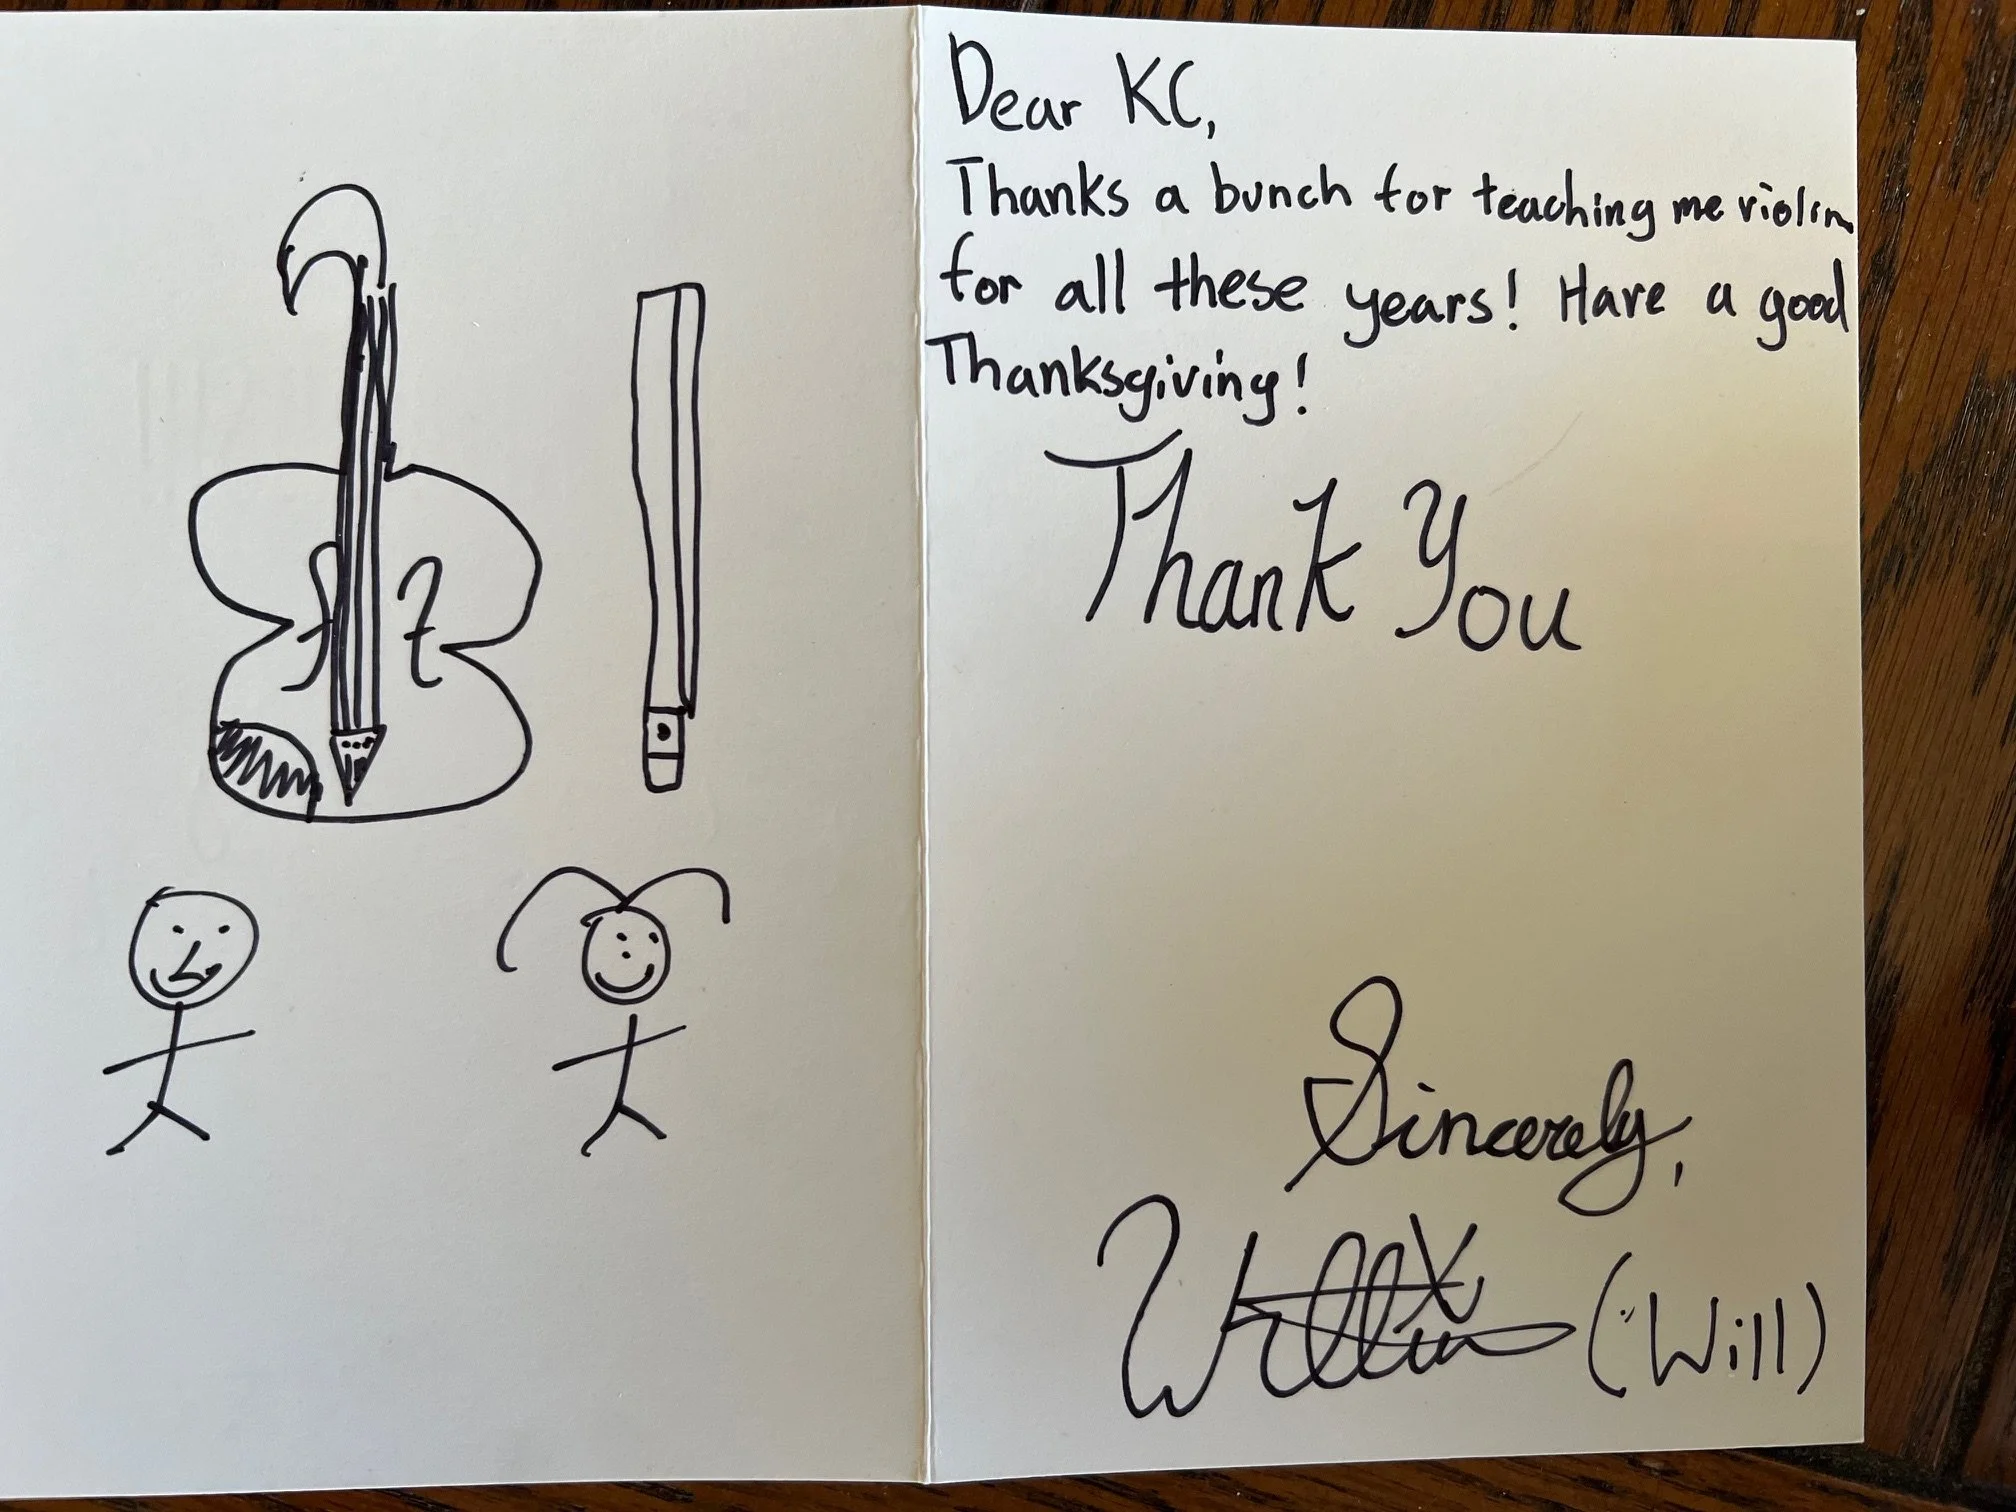 Dear KC,
Thanks a bunch for teaching me violin
for all these years! Have a good
Thanksgiving!
Thank You
Sincerely,
(Will)